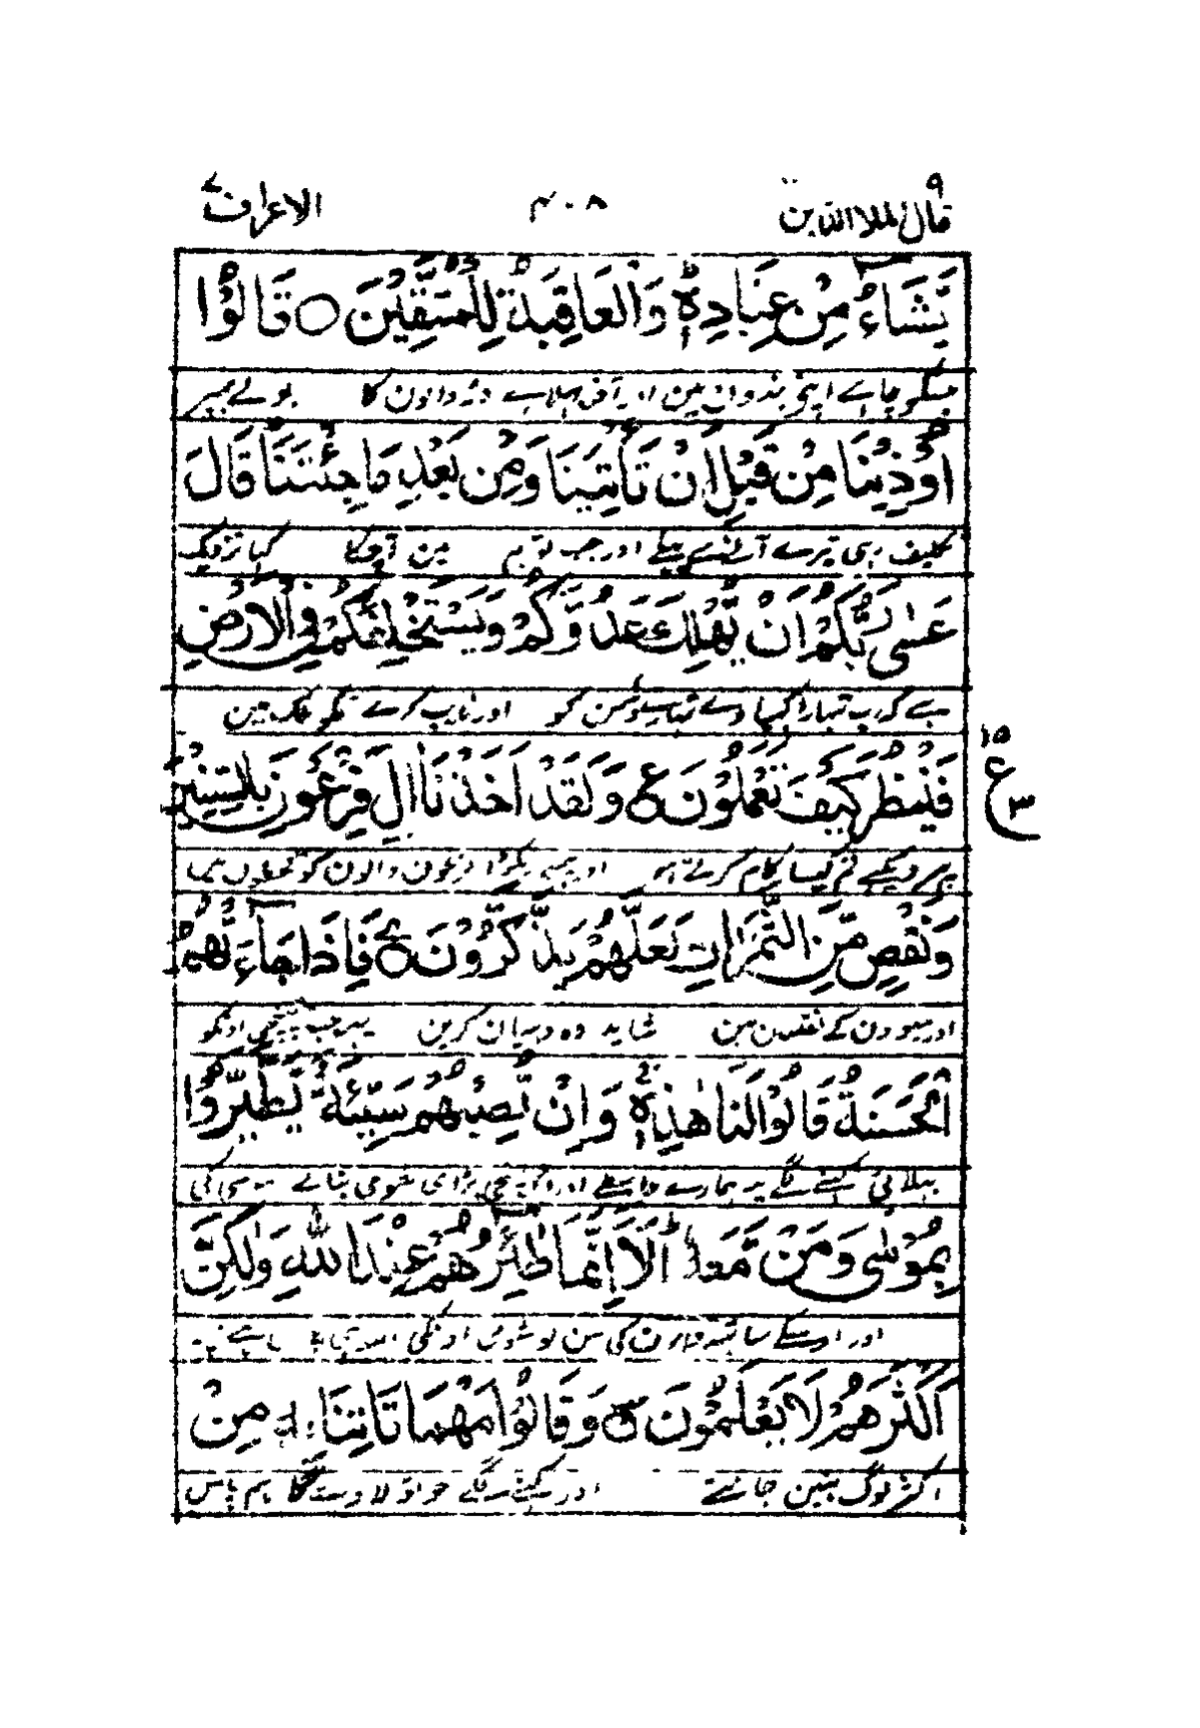 قال الملا الذین ۹ ۴۰۸ الاعراف ۷
يَّشَآءُ مِنْ عِبَادِهٖ وَالْعَاقِبَةُ لِلْمُتَّقِيْنَ ○ قَالُوْٓا
جسکو چاہے اپنے بندوان مین اور آخر بہلا ہے ڈر والون کا بولے ہمپر
اُوْذِيْنَا مِنْ قَبْلِ اَنْ تَاْتِيَنَا وَمِنْۢ بَعْدِ مَا جِئْتَنَا قَالَ
تکلیف رہی تیرے آنے سے پہلے اور جب تو ہم مین آچکا کہا نزدیک
عَسٰى رَبُّكُمْ اَنْ يُّهْلِكَ عَدُوَّكُمْ وَيَسْتَخْلِفَكُمْ فِى الْاَرْضِ
ہے کہ رب تمہارا کہپا دے تمہارے دشمن کو اور نایب کرے تمکو ملک مین
فَيَنْظُرَ كَيْفَ تَعْمَلُوْنَ ع وَلَقَدْ اَخَذْنَآ اٰلَ فِرْعَوْنَ بِالسِّنِيْنَ
۱۵ ع ۳
پہر دیکھے تم کیسا کام کرتے ہو اور ہمنے پکڑا فرعون والون کو قحطون مین
وَنَقْصٍ مِّنَ الثَّمَرٰتِ لَعَلَّهُمْ يَذَّكَّرُوْنَ فَاِذَا جَآءَتْهُمُ
اور میوون کے نقصان مین شاید وہ دہیان کرین پہر جب پہنچی اونکو
الْحَسَنَةُ قَالُوْا لَنَا هٰذِهٖ وَاِنْ تُصِبْهُمْ سَيِّئَةٌ يَّطَّيَّرُوْا
بہلائی کہنے لگے یہ ہمارے واسطے اور اگر پہنچی برائی شومی بتاتے موسی کی
بِمُوْسٰى وَمَنْ مَّعَهٗ اَلَآ اِنَّمَا طٰٓئِرُهُمْ عِنْدَ اللّٰهِ وَلٰكِنَّ
اور اوسکے ساتہہ والون کی سن لو شومی اونکی اللہ ہی پاس ہے
اَكْثَرَهُمْ لَا يَعْلَمُوْنَ وَقَالُوْا مَهْمَا تَاْتِنَا بِهٖ مِنْ
اکثر لوگ نہین جانتے اور کہنے لگے جو تو لاوے گا ہم پاس